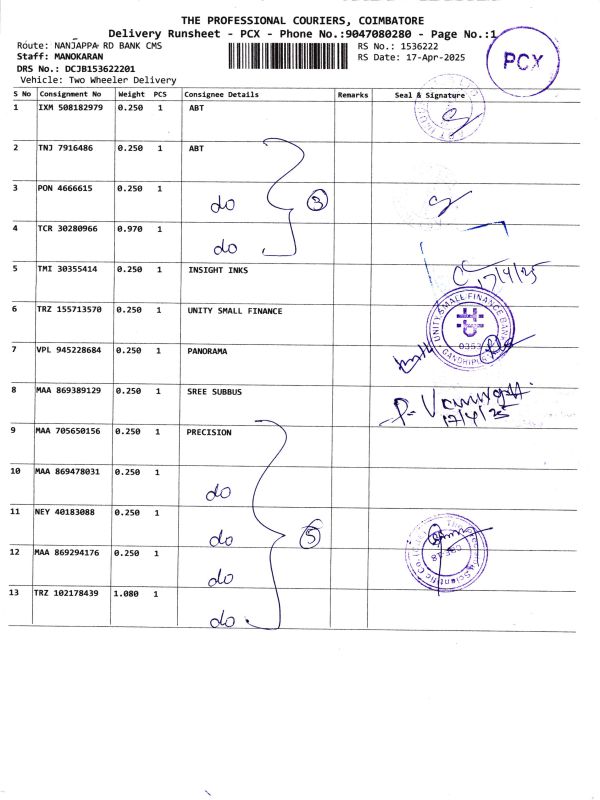 THE PROFESSIONAL COURIERS, COIMBATORE
Delivery Runsheet - PCX - Phone No.:9047080280 - Page No.:1
Route: NANJAPPA RD BANK CMS
Staff: MANOKARAN
DRS No.: DCJB153622201
Vehicle: Two Wheeler Delivery
RS No.: 1536222
RS Date: 17-Apr-2025
PCX
S No Consignment No Weight PCS Consignee Details Remarks Seal & Signature
1 IXM 508182979 0.250 1 ABT
2 TNJ 7916486 0.250 1 ABT
3 PON 4666615 0.250 1 do
3
4 TCR 30280966 0.970 1 do
5 TMI 30355414 0.250 1 INSIGHT INKS
17/4/25
6 TRZ 155713570 0.250 1 UNITY SMALL FINANCE
UNITY SMALL FINANCE BANK
0353
7 VPL 945228684 0.250 1 PANORAMA
8 MAA 869389129 0.250 1 SREE SUBBUS
17/4/25
9 MAA 705650156 0.250 1 PRECISION
10 MAA 869478031 0.250 1 do
11 NEY 40183088 0.250 1 do
5
12 MAA 869294176 0.250 1 do
13 TRZ 102178439 1.080 1 do